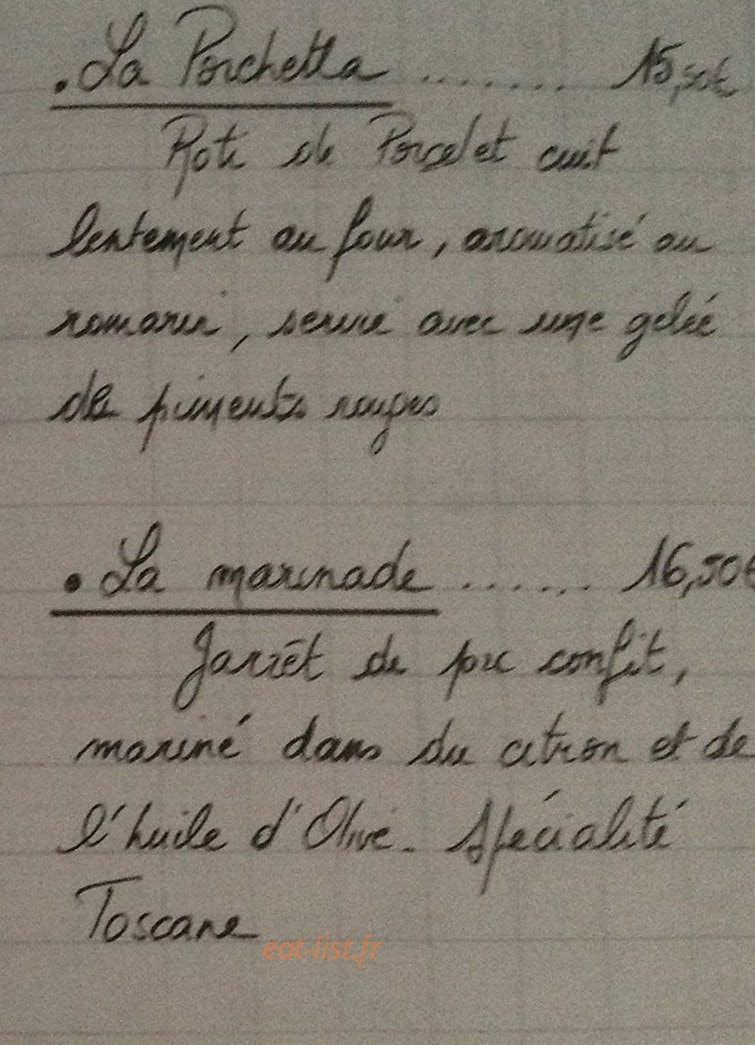 . La Porchetta ........ 15,50€
Roti de Porcelet cuit
lentement au four, aromatisé au
romarin, servie avec une gelée
de piments rouges
. La marinade ....... 16,50€
Jarret de porc confit,
mariné dans du citron et de
l'huile d'Olive. Spécialité
Toscane
eat-list.fr